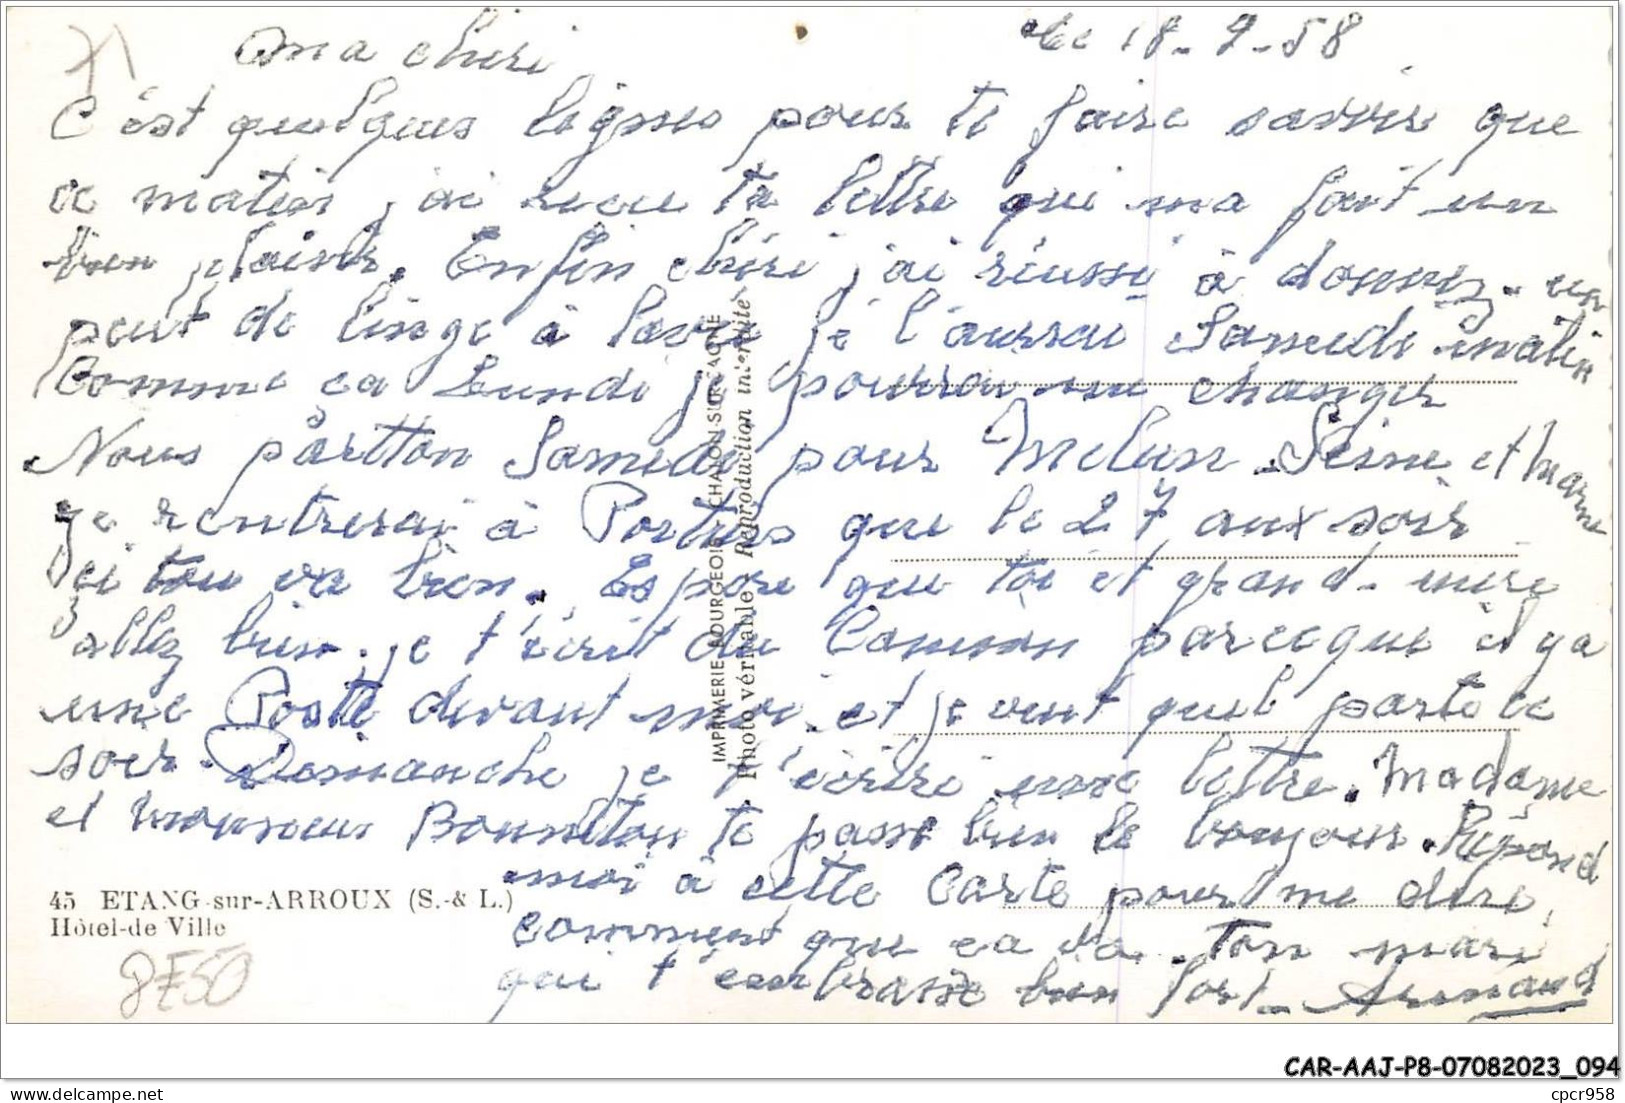 Le 18-9-58
ma chéri
C'est quelques lignes pour te faire savoir que
ce matin j'ai recu ta lettre qui ma fait un
bien plaisir. Enfin chéri j'ai réussi à donnez un
peut de linge à lavé je l'aurrai Samedi matin
Comme ca Lundi je pourrai me changer
Nous partton Samedi pour Melun Seine et Marne
je rentrerai à que le 27 aux soir
ici tou va bien. Espore que toi et grand-mère
allez bien. je t'écrit du Camion parceque il ya
une Poste devant moi. et je veut quel parte ce
soir. Dimanche je t'écriré une lettre. Madame
et monsieur te passe bien le bonjour. Répond
moi à cette Carte pour me dire
comment que ca va. ton mari
qui t'embrasse bien fort. Armand
IMPRIMERIE BOURGEOIS CHALON-SUR-SAONE
Photo véritable Reproduction interdite
45 ETANG-sur-ARROUX (S.-& L.)
Hôtel-de Ville
8E50
CAR-AAJ-P8-07082023_094
cpcr958